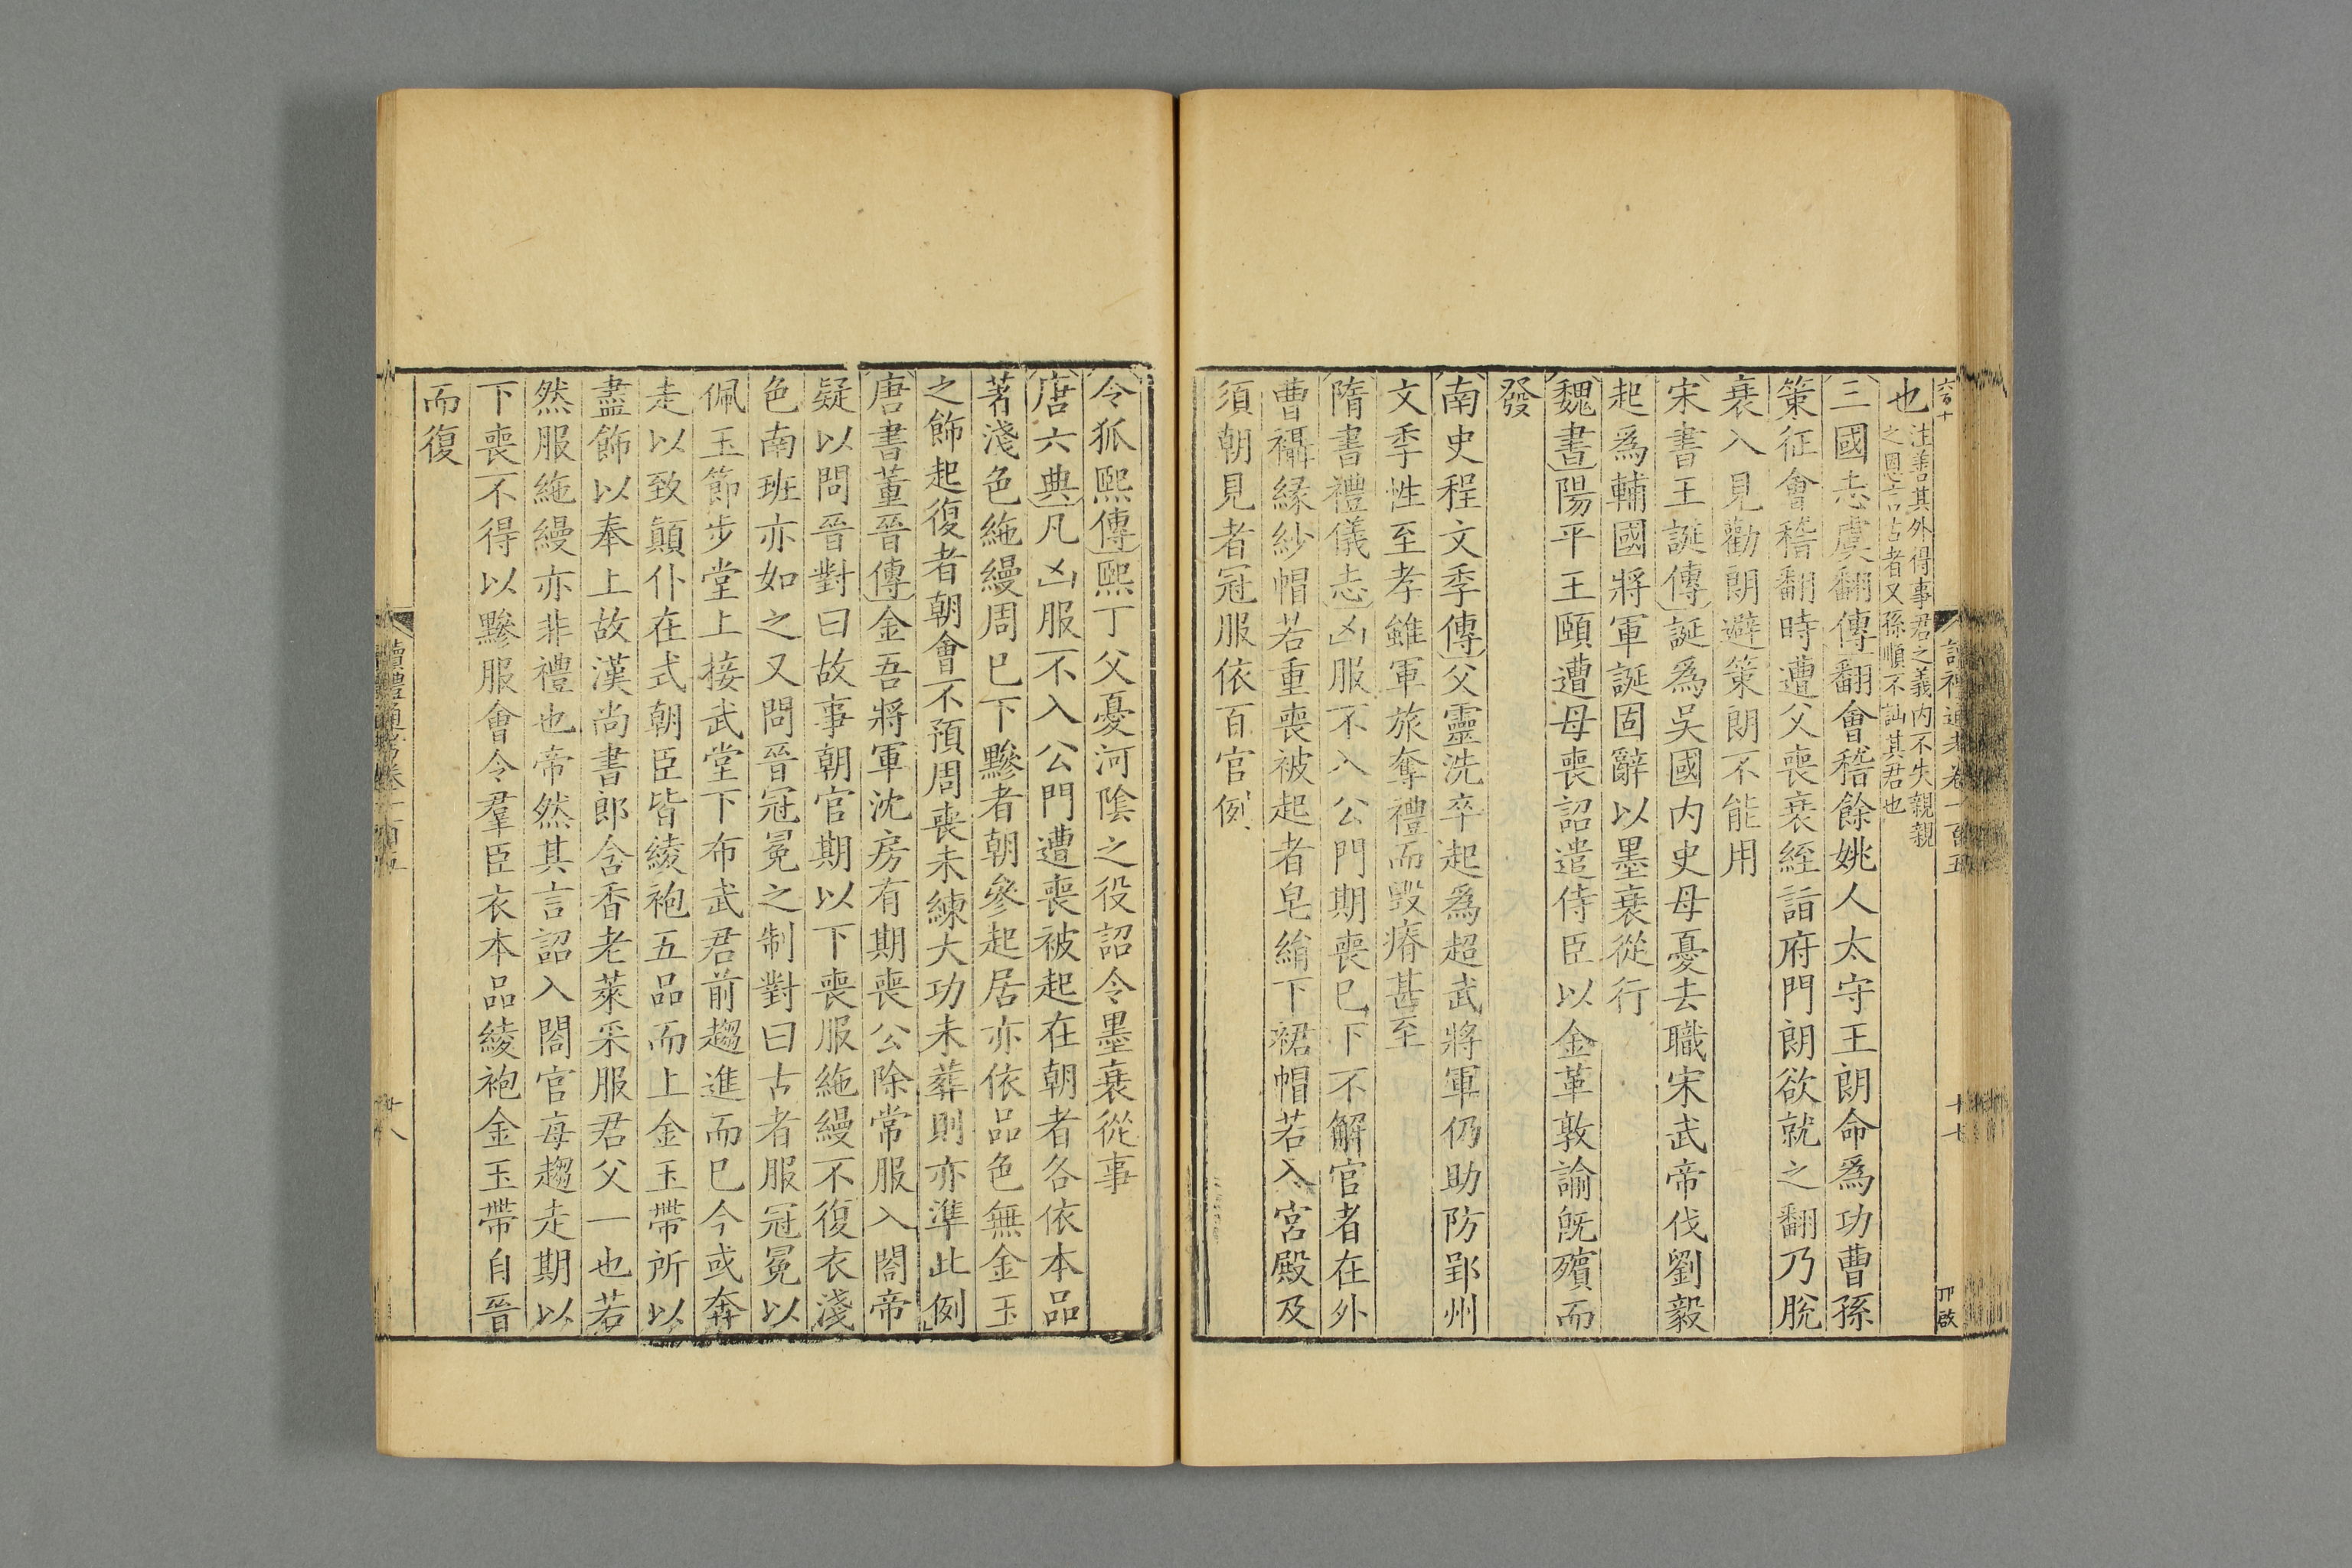 也注善其外得事君之義內不失親親
之恩言古者又孫順不訕其君也
三國志虞翻傳翻會稽餘姚人太守王朗命爲功曹孫
策征會稽翻時遭父喪衰絰詣府門朗欲就之翻乃脫
衰入見勸朗避策朗不能用
宋書王誕傳誕爲吳國內史母憂去職宋武帝伐劉毅
起爲輔國將軍誕固辭以墨衰從行
魏書陽平王頤遭母喪詔遣侍臣以金革敦諭旣殯而
發
南史程文季傳父靈洗卒起爲超武將軍仍助防郢州
文季性至孝雖軍旅奪禮而毀瘠甚至
隋書禮儀志凶服不入公門期喪已下不解官者在外
曹襵緣紗帽若重喪被起者皂絹下裙帽若入宮殿及
須朝見者冠服依百官例
令狐熙傳熙丁父憂河陰之役詔令墨衰從事
唐六典凡凶服不入公門遭喪被起在朝者各依本品
著淺色絁縵周已下黲者朝參起居亦依品色無金玉
之飾起復者朝會不預周喪未練大功未葬則亦準此例
唐書董晉傳金吾將軍沈房有期喪公除常服入閤帝
疑以問晉對曰故事朝官期以下喪服絁縵不復衣淺
色南班亦如之又問晉冠冕之制對曰古者服冠冕以
佩玉節步堂上接武堂下布武君前趨進而已今或奔
走以致顛仆在式朝臣皆綾袍五品而上金玉帶所以
盡飾以奉上故漢尚書郎含香老萊采服君父一也若
然服絁縵亦非禮也帝然其言詔入閤官毎趨走期以
下喪不得以黲服會令羣臣衣本品綾袍金玉帶自晉
而復
讀禮通考卷一百五
十八